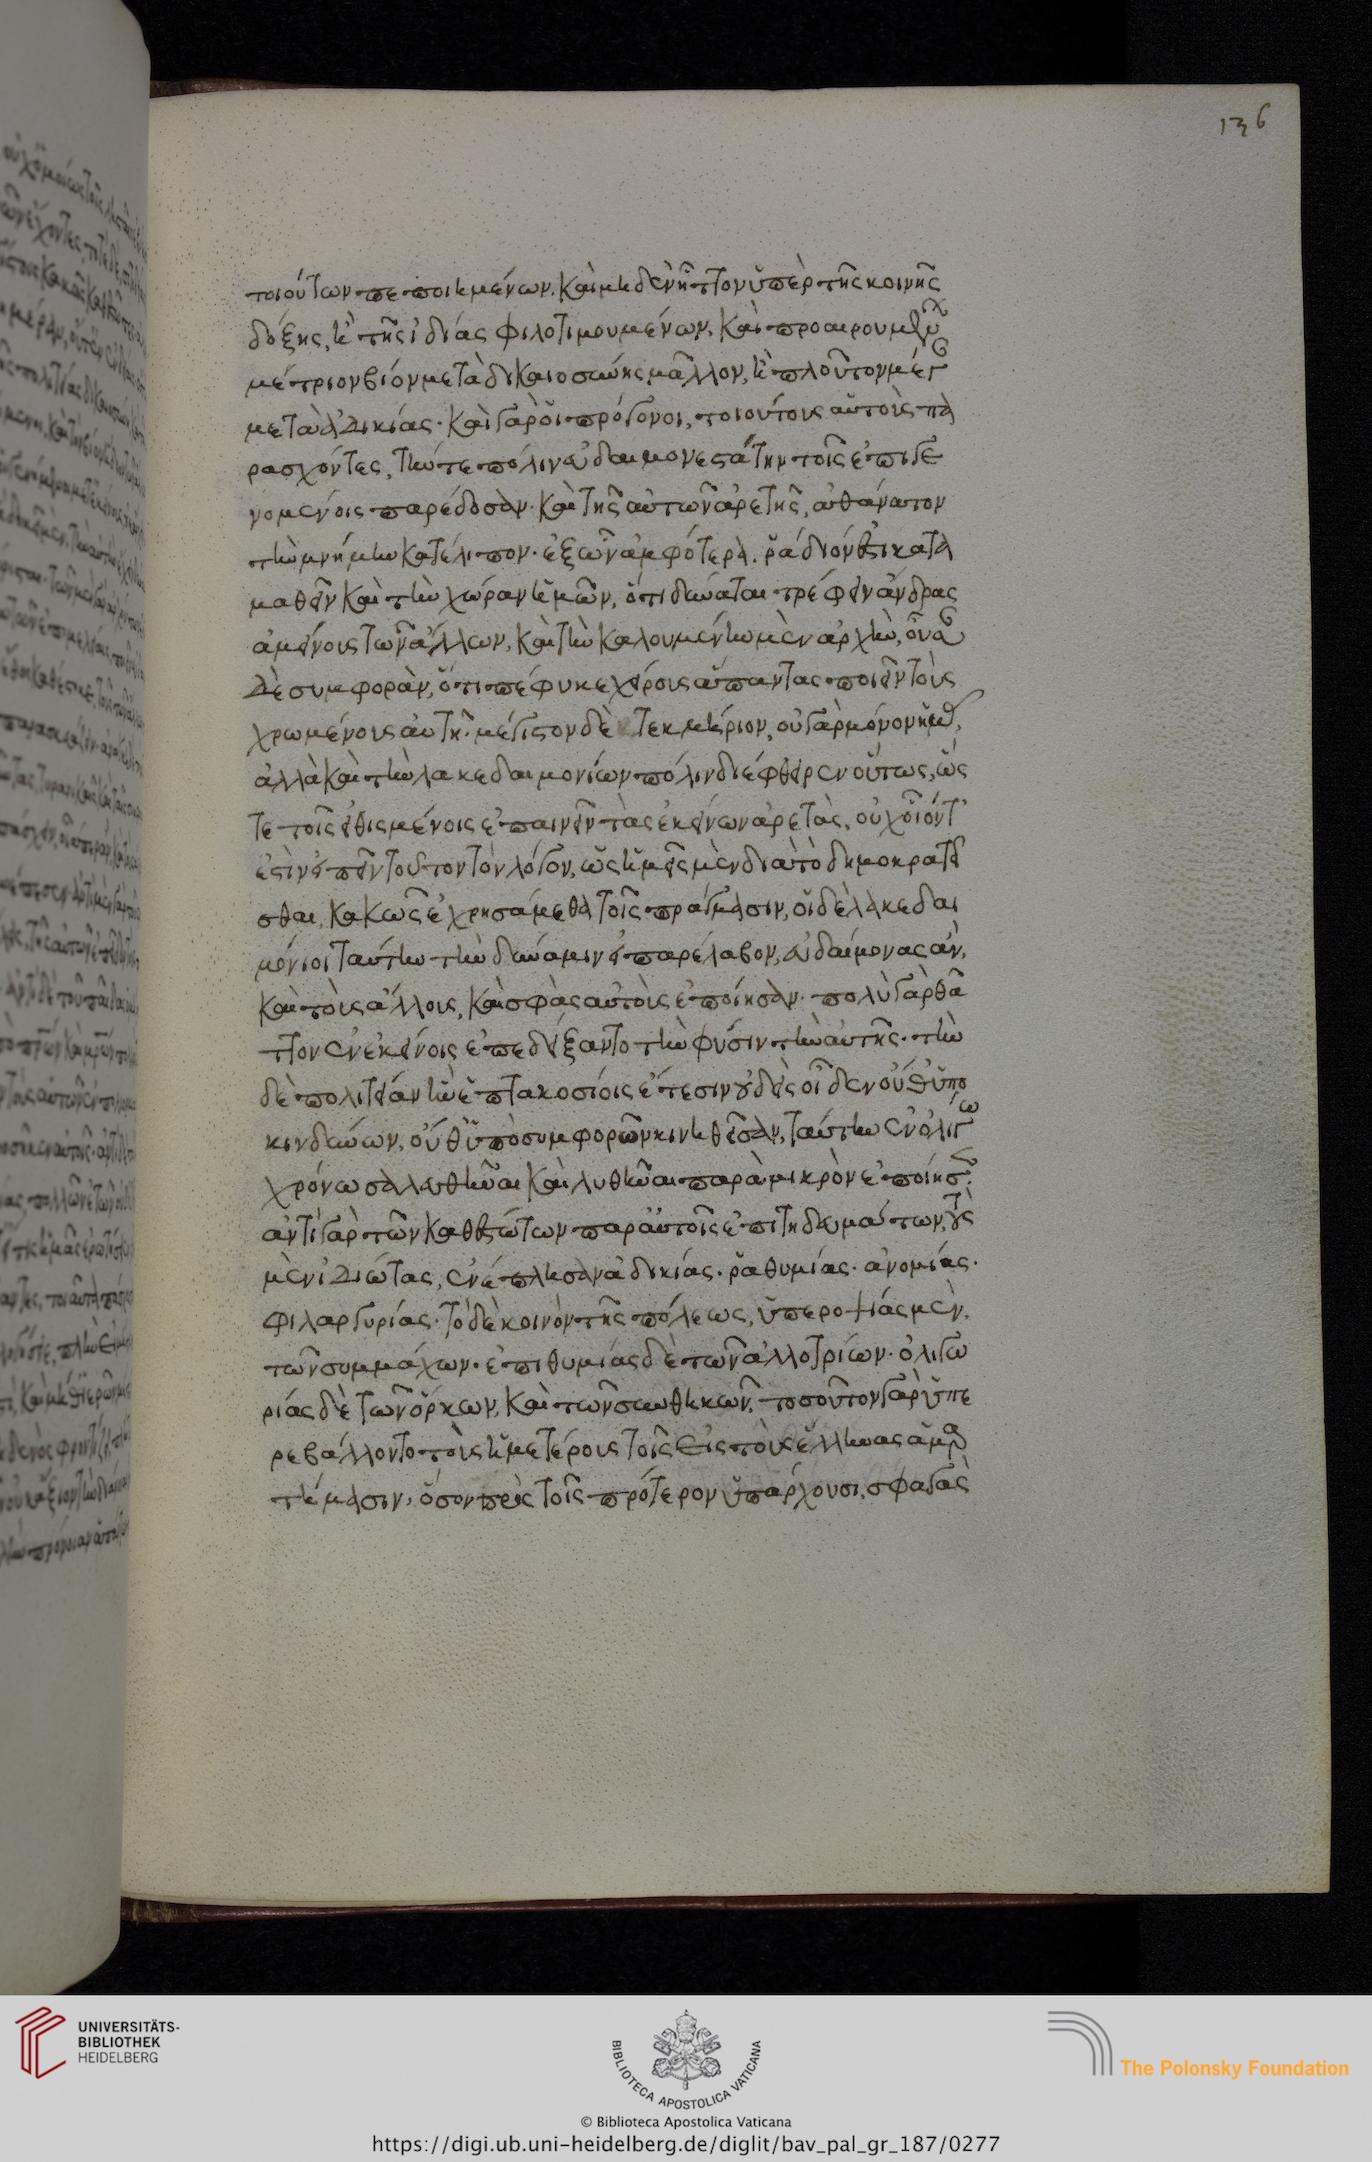 136
τοιούτων πεποιημένων. καὶ μηδὲν ἧττον ὑπὲρ τῆς κοινῆς
δόξης, ἢ τῆς ἰδίας φιλοτιμουμένων. καὶ προαιρουμένων
μέτριον βίον μετὰ δικαιοσύνης μᾶλλον, ἢ πλοῦτον μέγαν
μετὰ ἀδικίας. καὶ γὰρ οἱ πρόγονοι, τοιούτους αὑτοὺς πα
ρασχόντες, τήν τε πόλιν εὐδαιμονεστάτην τοῖς ἐπιγε
νομένοις παρέδοσαν. καὶ τῆς αὑτῶν ἀρετῆς, ἀθάνατον
τὴν μνήμην κατέλιπον. ἐξ ὧν ἀμφότερα. ῥάδιόν ἐστι κατα
μαθεῖν καὶ τὴν χώραν ἡμῶν, ὅτι δύναται τρέφειν ἄνδρας
ἀμείνους τῶν ἄλλων. καὶ τὴν καλουμένην μὲν ἀρχὴν, οὖσαν
δὲ συμφορὰν, ὅτι πέφυκε χείρους ἅπαντας ποιεῖν τοὺς
χρωμένους αὐτῇ. μέγιστον δὲ τεκμήριον, οὐ γὰρ μόνον ἡμᾶς,
ἀλλὰ καὶ τὴν λακεδαιμονίων πόλιν διέφθειρεν οὕτως, ὥς
τε τοῖς εἰθισμένοις ἐπαινεῖν τὰς ἐκείνων ἀρετὰς, οὐχ οἷόντ'
ἐστὶν εἰπεῖν τοῦτον τὸν λόγον, ὡς ἡμεῖς μὲν διὰ τὸ δημοκρατεῖ
σθαι, κακῶς ἐχρησάμεθα τοῖς πράγμασιν, οἱ δὲ λακεδαι
μόνιοι ταύτην τὴν δύναμιν εἰ παρέλαβον, εὐδαίμονας ἂν,
καὶ τοὺς ἄλλους, καὶ σφᾶς αὐτοὺς ἐποίησαν. πολὺ γὰρ θᾶ
ττον ἐν ἐκείνοις ἐπεδείξαντο τὴν φύσιν τὴν αὐτῆς. τὴν
δὲ πολιτείαν ἣν ἑπτακοσίοις ἔτεσιν οὐδεὶς οἶδεν οὔθ' ὑπο
κινδύνων, οὔθ' ὑπὸ συμφορῶν κινηθεῖσαν, ταύτην ἐν ὀλίγῳ
χρόνω σαλευθῆναι καὶ λυθῆναι παρὰ μικρὸν ἐποίησεν.
ἀντὶ γὰρ τῶν καθεστώτων παρ' αὐτοῖς ἐπιτηδευμάτων, τοὺς
μὲν ἰδιώτας, ἐνέπλησαν ἀδικίας. ῥαθυμίας. ἀνομίας.
φιλαργυρίας. τὸ δὲ κοινὸν τῆς πόλεως, ὑπεροψίας μὲν,
τῶν συμμάχων. ἐπιθυμίας δὲ τῶν ἀλλοτρίων. ὀλιγω
ρίας δὲ τῶν ὅρκων, καὶ τῶν συνθηκῶν. τοσοῦτον γὰρ ὑπε
ρεβάλλοντο τοὺς ἡμετέρους τοῖς εἰς τοὺς ἕλληνας ἁμαρ
τήμασιν, ὅσον πρὸς τοῖς πρότερον ὑπάρχουσι, σφαγὰς
UNIVERSITÄTS-
BIBLIOTHEK
HEIDELBERG
BIBLIOTECA APOSTOLICA VATICANA
The Polonsky Foundation
© Biblioteca Apostolica Vaticana
https://digi.ub.uni-heidelberg.de/diglit/bav_pal_gr_187/0277